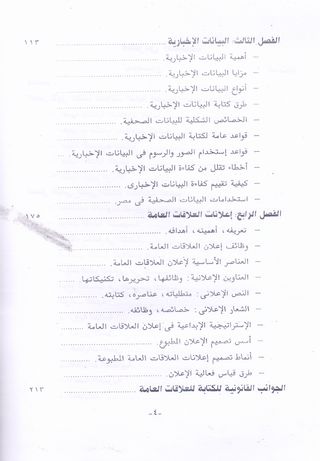 الفصل الثالث: البيانات الإخبارية ........................ ١١٣
– أهمية البيانات الإخبارية.
– مزايا البيانات الإخبارية.
– أنواع البيانات الإخبارية.
– طرق كتابة البيانات الإخبارية.
– الخصائص الشكلية للبيانات الصحفية.
– قواعد عامة لكتابة البيانات الإخبارية.
– قواعد إستخدام الصور والرسوم فى البيانات الإخبارية.
– أخطاء تقلل من كفاءة البيانات الإخبارية.
– كيفية تقييم كفاءة البيانات الإخبارى.
– استخدامات البيانات الصحفية فى مصر.
الفصل الرابع: إعلانات العلاقات العامة ........................ ١٧٥
– تعريفه، أهميته، أهدافه.
– وظائف إعلان العلاقات العامة.
– العناصر الأساسية لإعلان العلاقات العامة.
– العناوين الإعلانية: وظائفها، تحريرها، تكنيكاتها.
– النص الإعلانى: متطلباته، عناصره، كتابته.
– الشعار الإعلانى: خصائصه، وظائفه.
– الإستراتيجية الإبداعية فى إعلان العلاقات العامة
– أسس تصميم الإعلان المطبوع.
– أنماط تصميم إعلانات العلاقات العامة المطبوعة.
– طرق قياس فعالية الإعلان.
الجوانب القانونية للكتابة للعلاقات العامة ........................ ٢١٣
-٤-